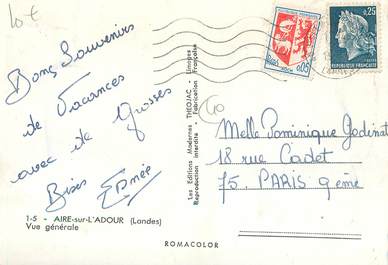 10 €
Bons Souvenirs
de Vacances
avec de Grosses
Bises
1-5 - AIRE-sur-L'ADOUR (Landes)
Vue générale
Les Editions Modernes THEOJAC, Limoges
Reproduction interdite - Fabrication Française
ROMACOLOR
0,05
AUCH
0,25
REPUBLIQUE FRANÇAISE
40
Melle Dominique Godinat
18 rue Cadet
75. PARIS 9eme